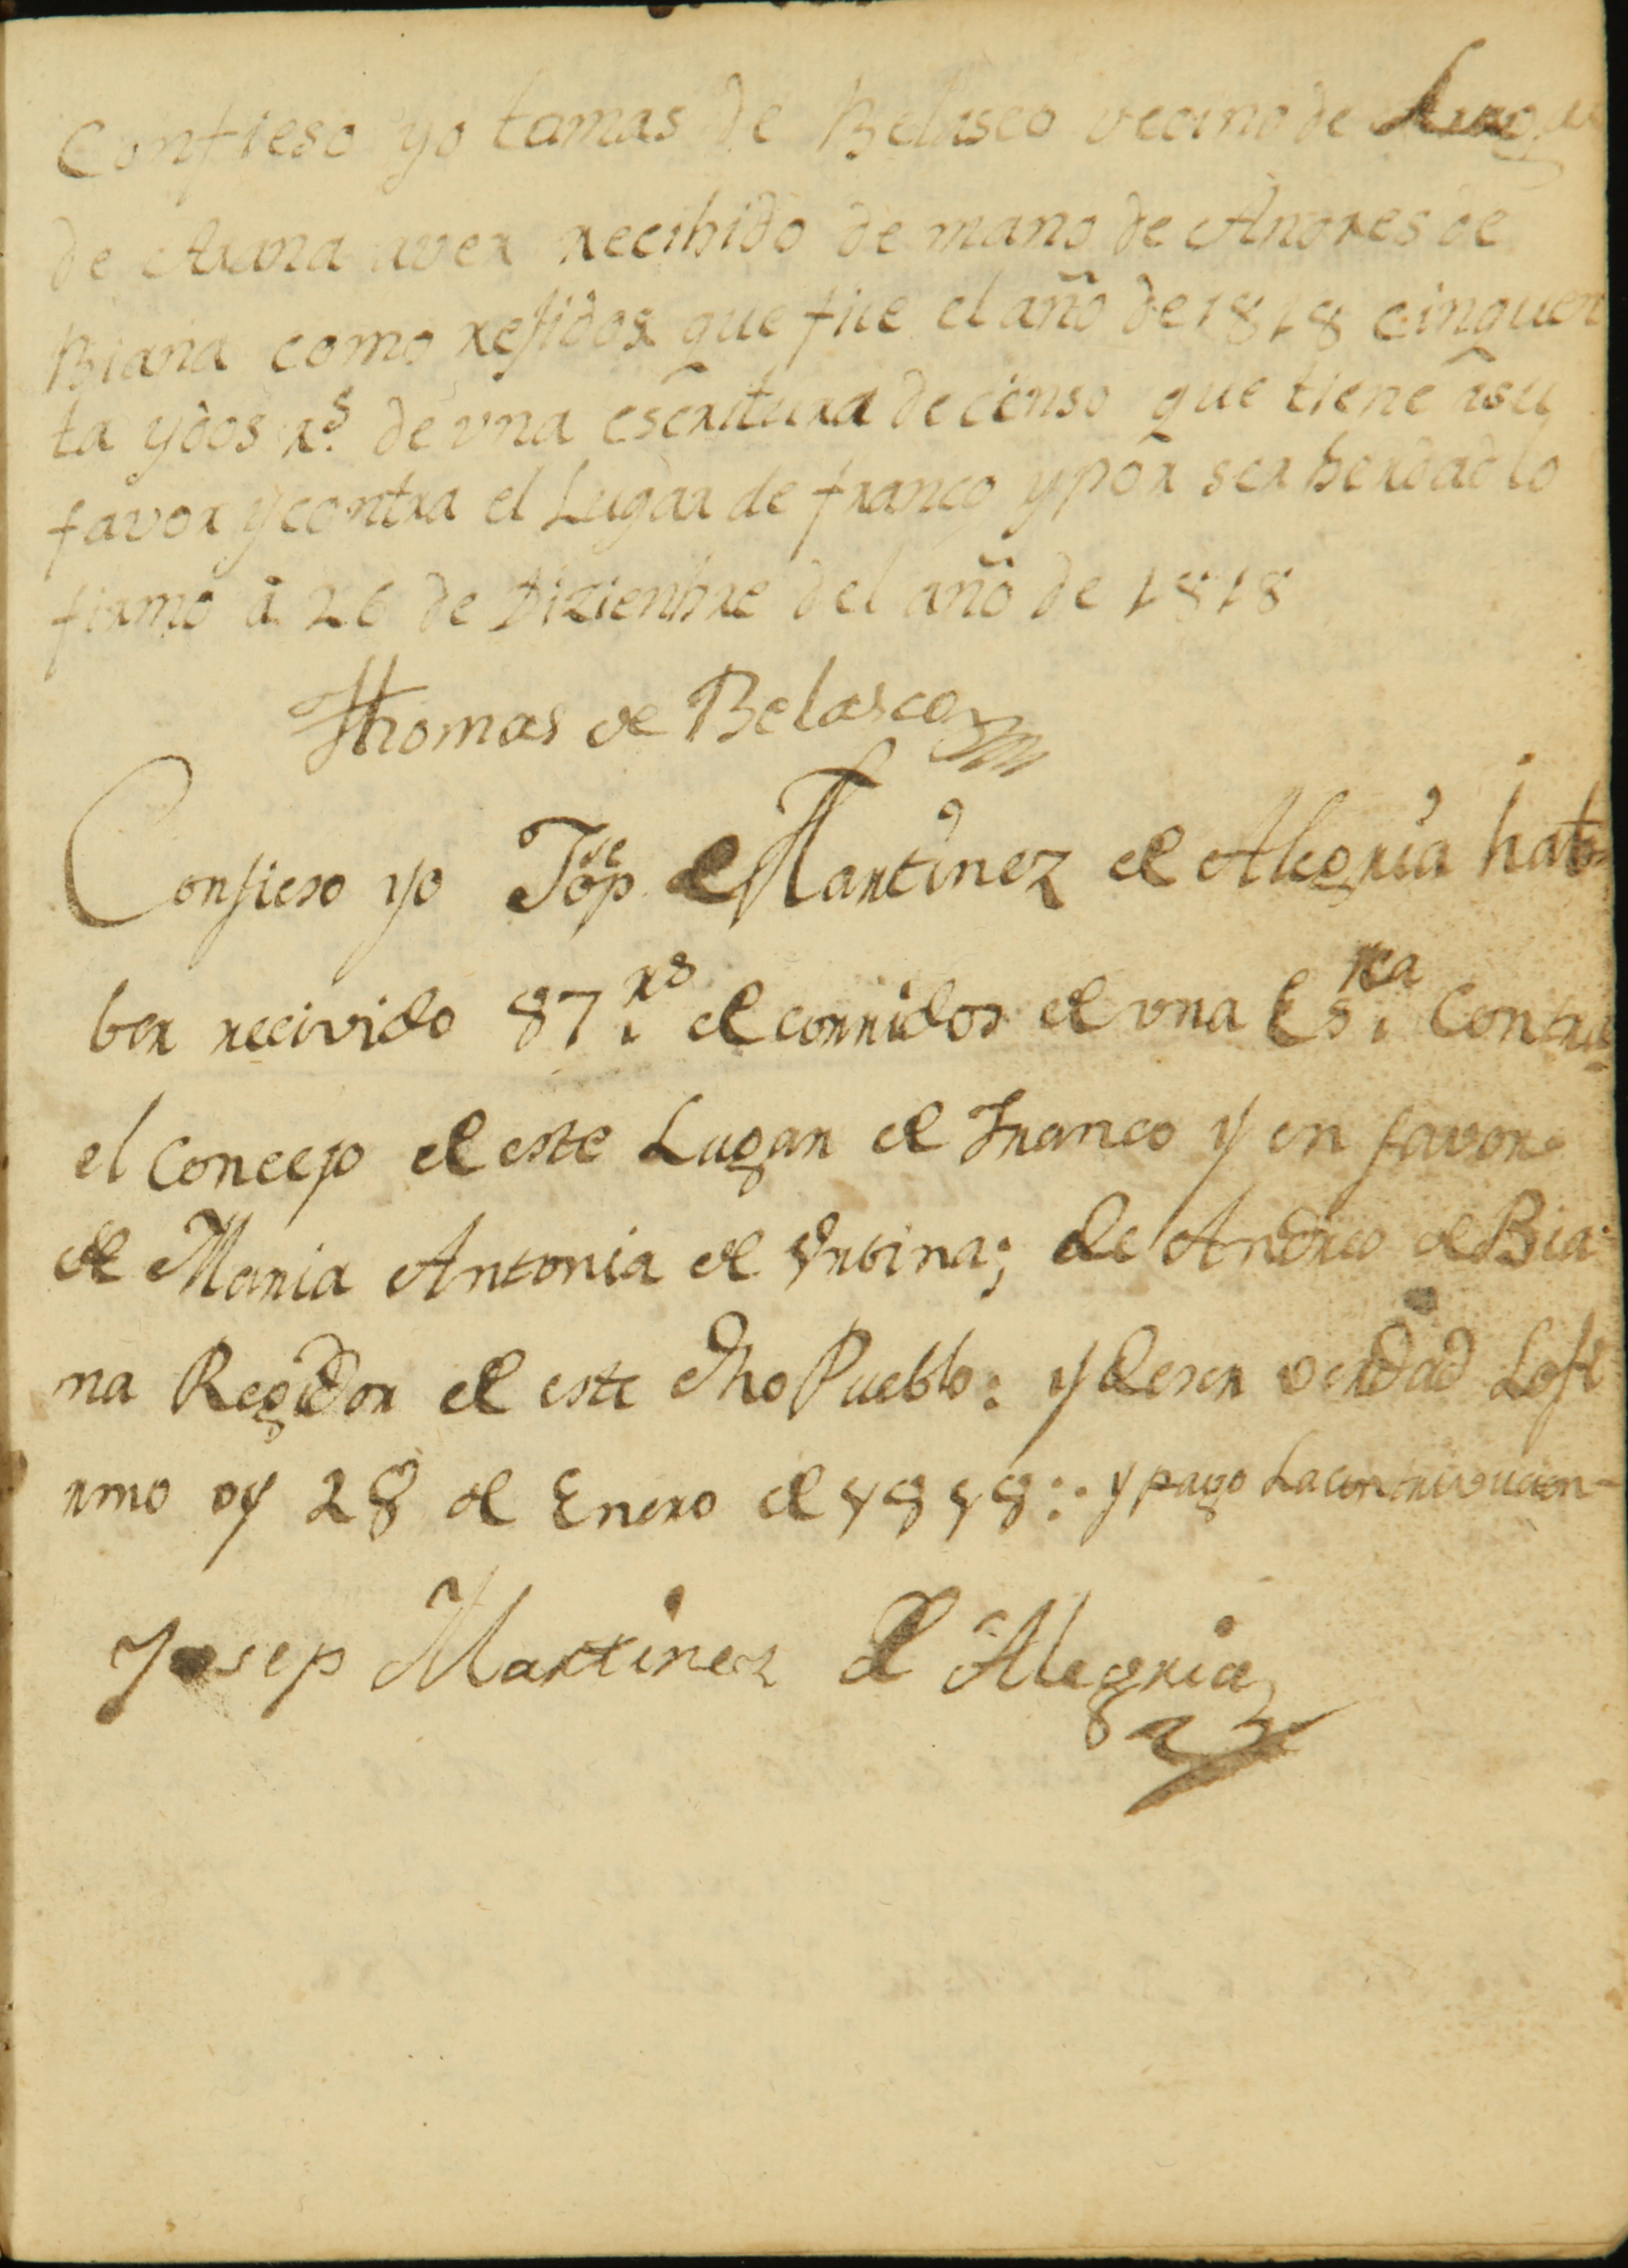 Confieso yo tomas de Belasco vecino de
de Arana aver recibido de mano de Andres de
Biana como rejidor que fue el año de 1818 cinquen
ta y dos r.s de vna escritura de censo que tiene asu
favor y contra el Lugar de franco y por ser berdad lo
firmo a 26 de Dizienbre del año de 1818
Thomas de Belasco
Confieso yo Jose.p Martinez de Alegria hab-
ber recivido 87.rs de corridos de vna Es.rra Contra
el Concejo de este Lugar de Franco y en favor
de Maria Antonia de Vrbina; de Andres de Bia-
na Regidor de este dho Pueblo: y de ser verdad Lofi
rmo oy 28 de Enero de 1818: y pago La contrivucion-
Josep Martinez D Alegria